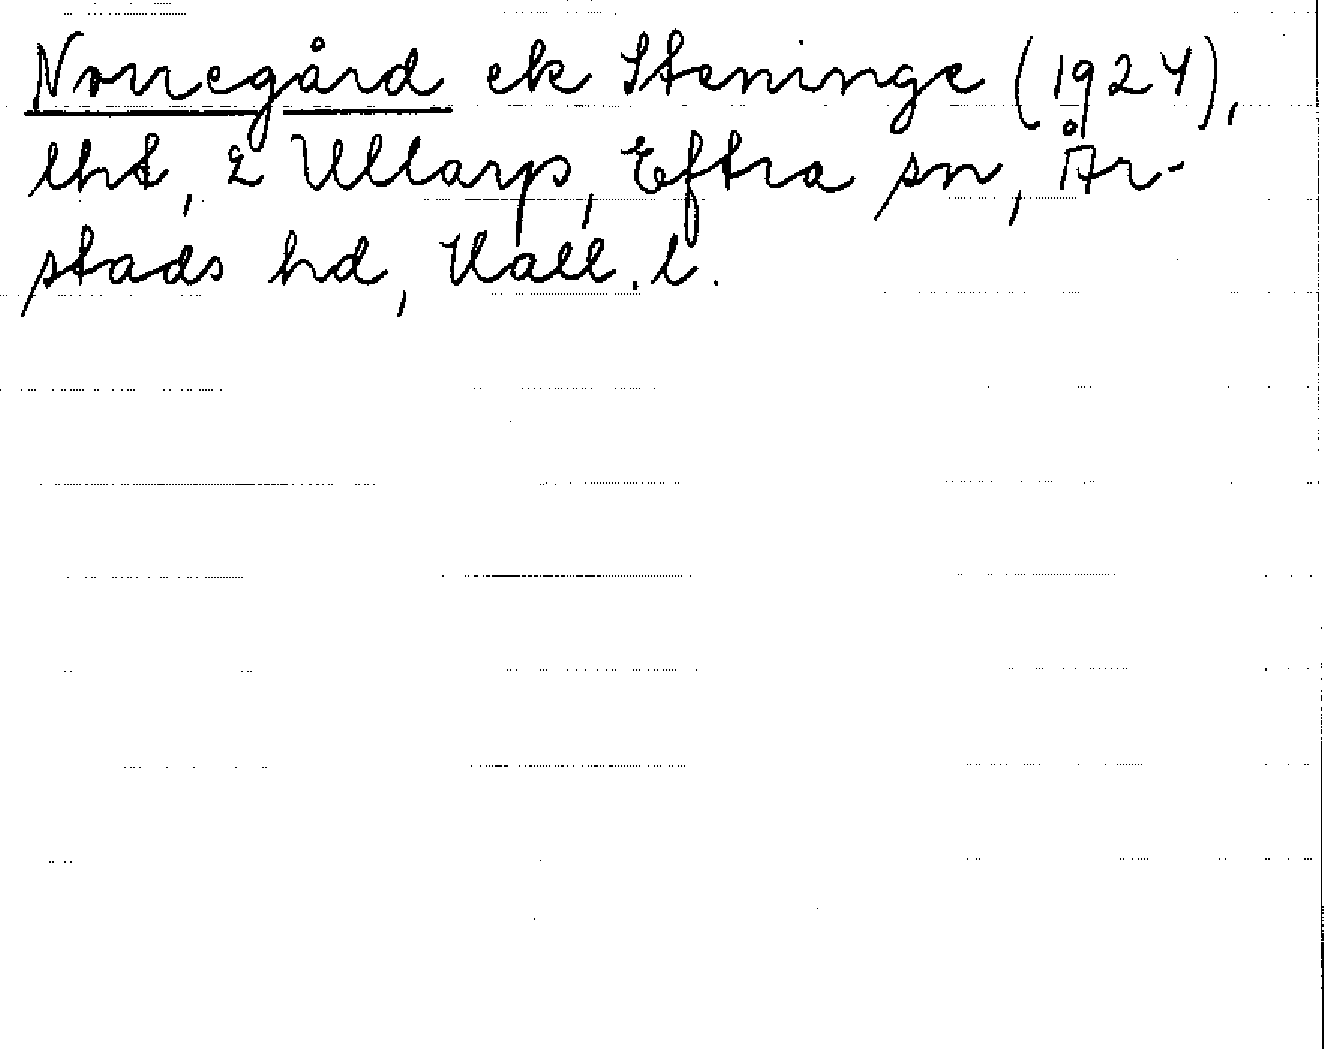 Norregård ek Steninge (1924),
lht, 2 Ullarp, Eftra sn, År-
stads hd, Hall. l.